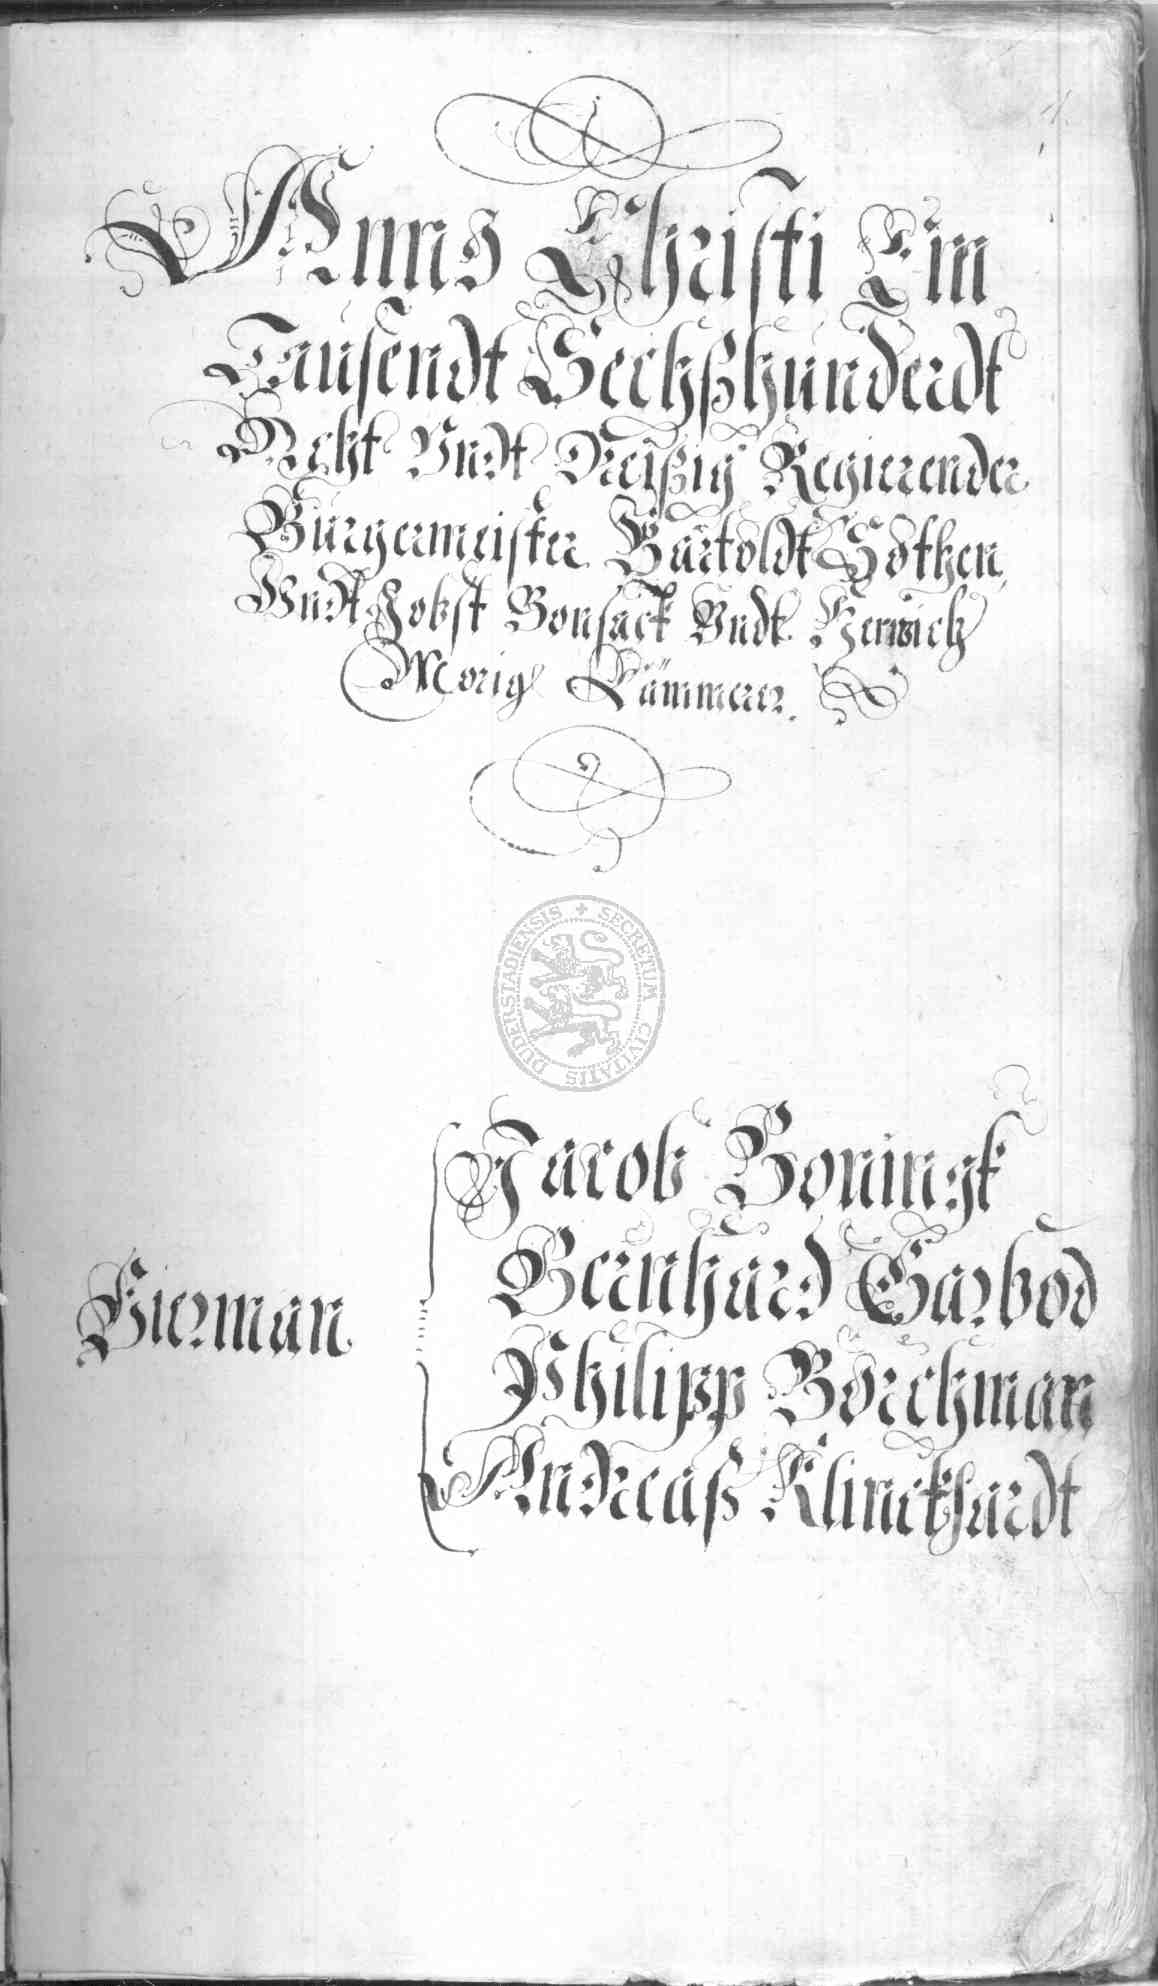 Anno Christi Ein
Tausendt Sechßhunderdt
Acht Vndt Dreißig Regierender
Burgermeister Bartoldt Söthen
Vndt Jobst Bonsack Vndt Henrich
Morig Cämmerer.
SECRETUM CIVITATIS DUDERSTADIENSIS
Jacob Boningk
Bernhard Garbod
Vierman
Philipp Borchman
Andreaß Klinckhardt